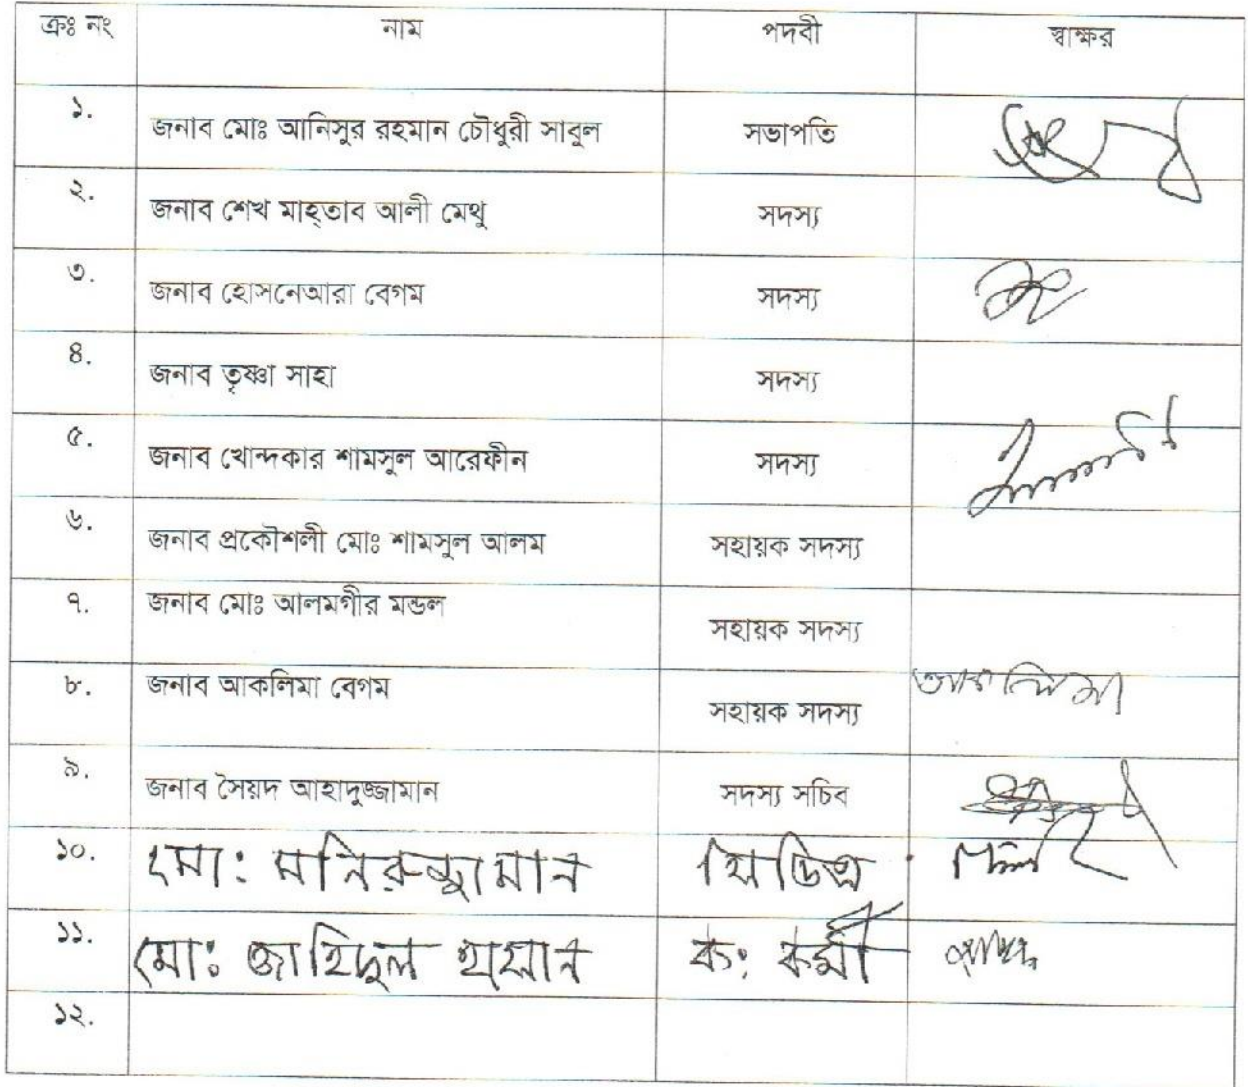 ক্রঃ নং নাম পদবী স্বাক্ষর
১. জনাব মোঃ আনিসুর রহমান চৌধুরী সাবুল সভাপতি
২. জনাব শেখ মাহ্তাব আলী মেথু সদস্য
৩. জনাব হোসনেআরা বেগম সদস্য
৪. জনাব তৃষ্ণা সাহা সদস্য
৫. জনাব খোন্দকার শামসুল আরেফীন সদস্য
৬. জনাব প্রকৌশলী মোঃ শামসুল আলম সহায়ক সদস্য
৭. জনাব মোঃ আলমগীর মন্ডল সহায়ক সদস্য
৮. জনাব আকলিমা বেগম সহায়ক সদস্য আকলিমা
৯. জনাব সৈয়দ আহাদুজ্জামান সদস্য সচিব
১০. মো: মনিরুজ্জামান সিডিএ
১১. মো: জাহিদুল হাসান ক: কর্মী
১২.